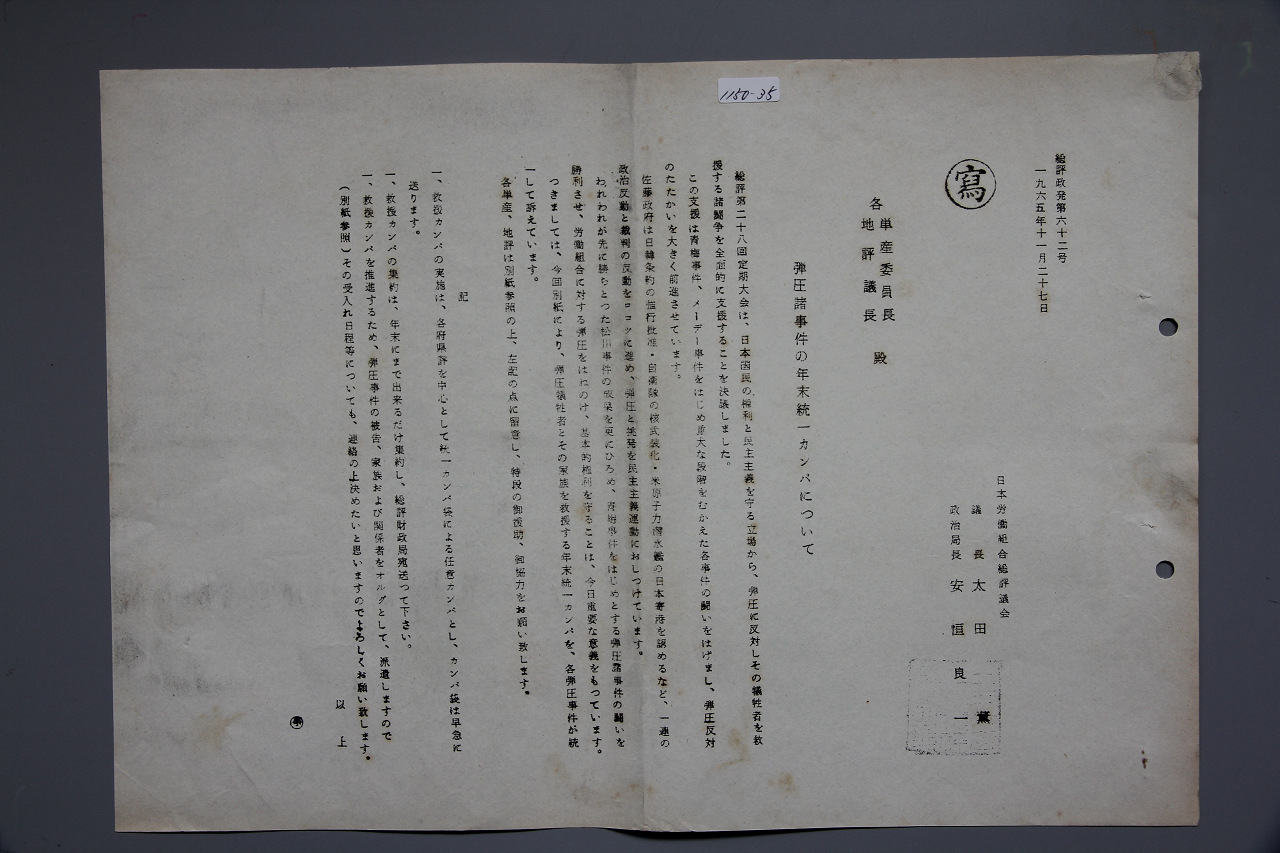 1150-35
総評政発第六十二号
一九六五年十一月二十七日
寫
日本労働組合総評議会
議長 太田薫
政治局長 安恒良一
各 単産委員長
地評議長 殿
弾圧諸事件の年末統一カンパについて
総評第二十八回定期大会は、日本国民の権利と民主主義を守る立場から、弾圧に反対しその犠牲者を救
援する諸闘争を全面的に支援することを決議しました。
この支援は青梅事件、メーデー事件をはじめ重大な段階をむかえた各事件の闘いをはげまし、弾圧反対
のたたかいを大きく前進させています。
佐藤政府は日韓条約の強行批准・自衛隊の核武装化・米原子力潜水艦の日本寄港を認めるなど、一連の
政治反動と裁判の反動をロコツに進め、弾圧と挑発を民主主義運動におしつけています。
われわれが先に勝ちとつた松川事件の成果を更にひろめ、青梅事件をはじめとする弾圧諸事件の闘いを
勝利させ、労働組合に対する弾圧をはねのけ、基本的権利を守ることは、今日重要な意義をもつています。
つきましては、今回別紙により、弾圧犠牲者とその家族を救援する年末統一カンパを、各弾圧事件が統
一して訴えています。
各単産、地評は別紙参照の上、左記の点に留意し、特段の御援助、御協力をお願い致します。
記
一、救援カンパの実施は、各府県評を中心として統一カンパ袋による任意カンパとし、カンパ袋は早急に
送ります。
一、救援カンパの集約は、年末にまで出来るだけ集約し、総評財政局宛送つて下さい。
一、救援カンパを推進するため、弾圧事件の被告、家族および関係者をオルグとして、派遣しますので
（別紙参照）その受入れ日程等についても、連絡の上決めたいと思いますのでよろしくお願い致します。
以上